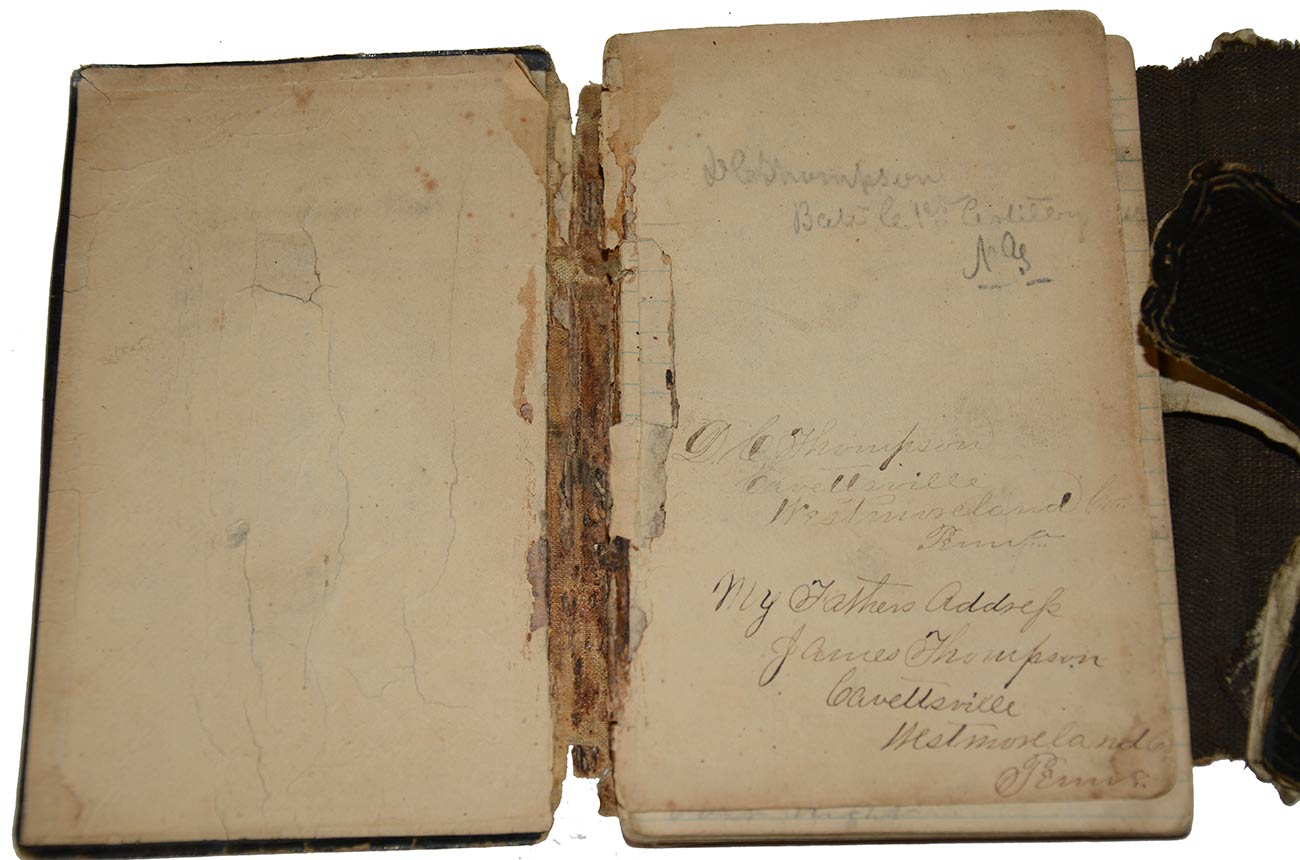 D C Thompson
Bat C. 1st Artillery
D. C. Thompson
Cavettsville
Westmoreland Co.
Penna.
My Fathers Addreſs
James Thompson
Cavettsville
Westmoreland Co
Penna.